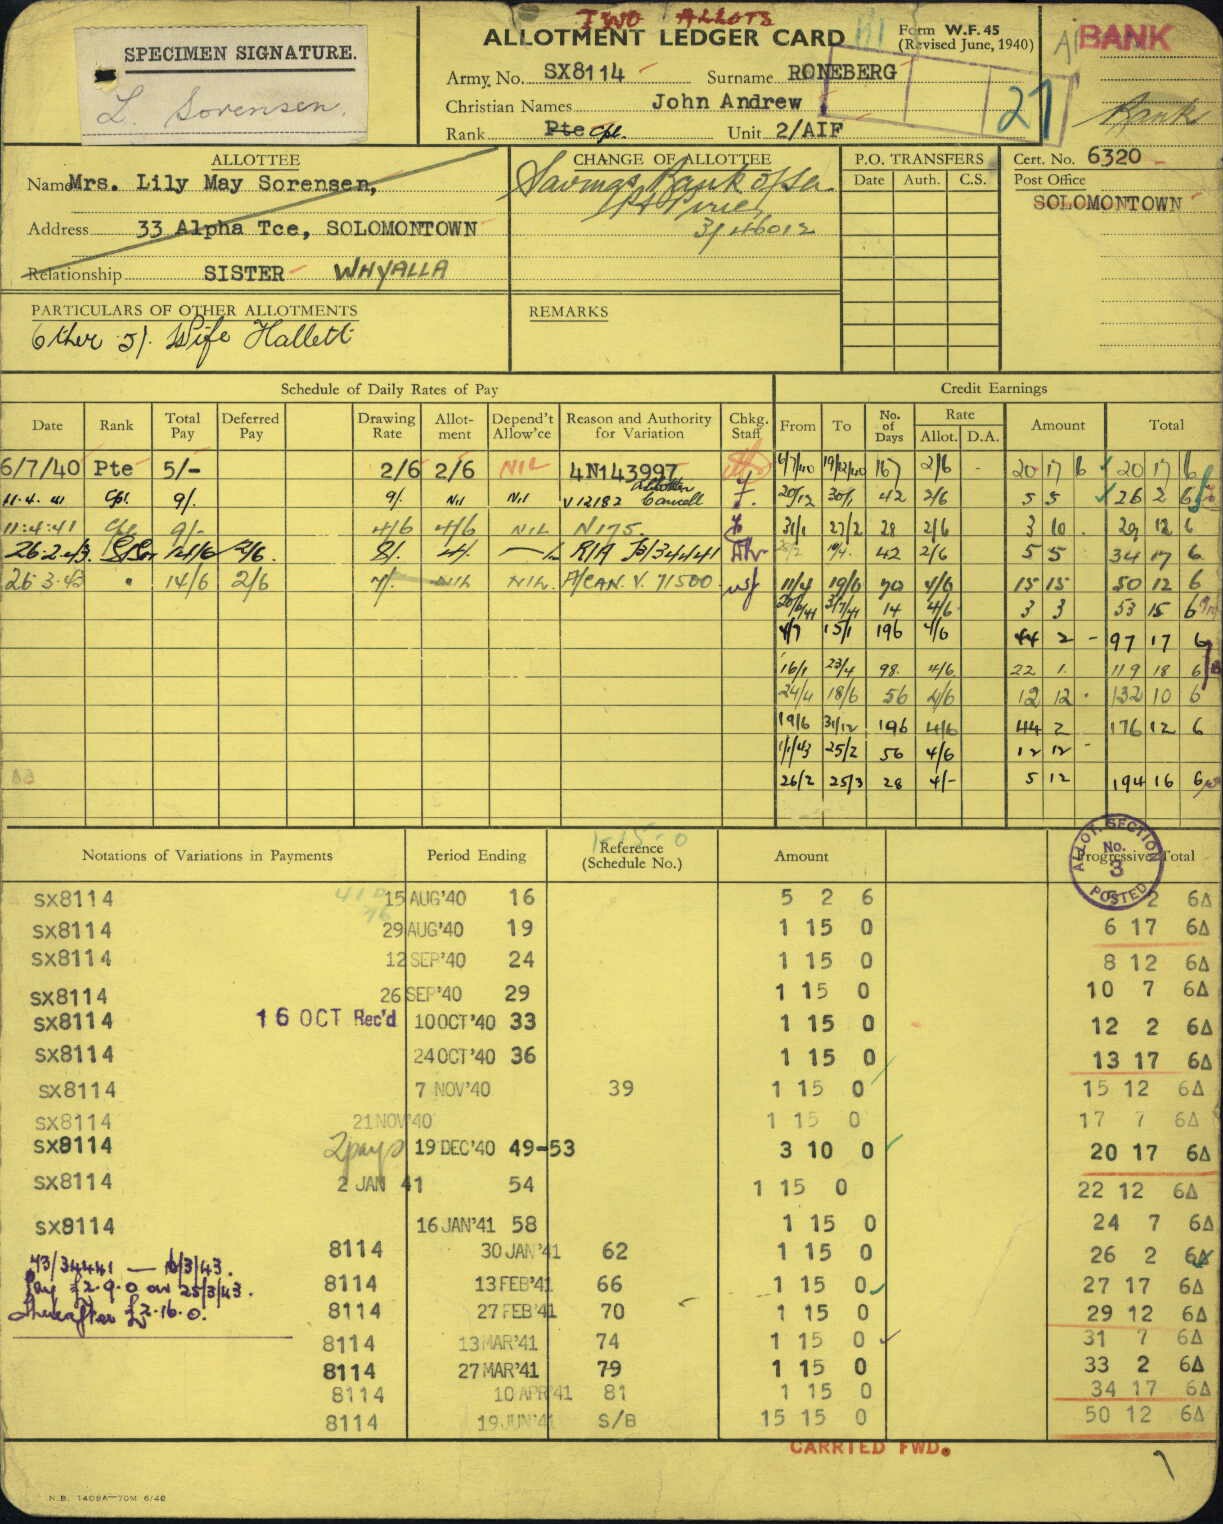 TWO ALLOTS
ALLOTMENT LEDGER CARD
Form W.F. 45
(Revised June, 1940)
BANK
Bank
SPECIMEN SIGNATURE.
L. Sorensen.
Army No. SX8114 Surname RONEBERG
Christian Names John Andrew
Rank Pte Cpl. Unit 2/AIF
27
ALLOTTEE
Name Mrs. Lily May Sorensen,
Address 33 Alpha Tce, SOLOMONTOWN
Relationship SISTER WHYALLA
CHANGE OF ALLOTTEE
Savings Bank of SA.
Pt Pirie
3/46012
P.O. TRANSFERS
Date Auth. C.S.
Cert. No. 6320
Post Office
SOLOMONTOWN
PARTICULARS OF OTHER ALLOTMENTS
Other 5/. Wife Hallett
REMARKS
Schedule of Daily Rates of Pay
Credit Earnings
Date Rank Total Pay Deferred Pay Drawing Rate Allot-ment Depend't Allow'ce Reason and Authority for Variation Chkg. Staff From To No. of Days Rate Allot. D.A. Amount Total
6/7/40 Pte 5/- 2/6 2/6 NIL 4N143997 6/7/40 19/12/40 167 2/6 - 20 17 6 20 17 6
11.4.41 Cpl 9/. 9/. Nil Nil V12182 Allotter Cancell 20/12 30/1 42 2/6 5 5 26 2 6
11:4:41 Cpl 9/- 4/6 4/6 NIL N175 31/1 27/2 28 2/6 3 10 . 29 12 6
26.2.43 2/6 8/. 4/. R/A 43/34441 10/4 42 2/6 5 5 34 17 6
26.3.43 " 14/6 2/6 7/. NIL NIL. P/CAN. V. 71500 11/4 19/6 70 4/6 15 15 50 12 6
20/6/41 3/7/41 14 4/6 3 3 53 15 6
4/7 15/1 196 4/6 44 2 - 97 17 6
16/1 23/4 98. 4/6 22 1. 119 18 6
24/4 18/6 56 4/6 12 12 . 132 10 6
19/6 31/12 196 4/6 44 2 176 12 6
1/1/43 25/2 56 4/6 12 12 -
26/2 25/3 28 4/- 5 12 194 16 6
1-15-0
Notations of Variations in Payments Period Ending Reference (Schedule No.) Amount Progressive Total
ALLOT. SECTION No. 3 POSTED
SX8114 15 AUG'40 16 5 2 6 5 2 6Δ
SX8114 29 AUG'40 19 1 15 0 6 17 6Δ
SX8114 12 SEP'40 24 1 15 0 8 12 6Δ
SX8114 26 SEP'40 29 1 15 0 10 7 6Δ
SX8114 16 OCT Rec'd 10 OCT'40 33 1 15 0 12 2 6Δ
SX8114 24 OCT'40 36 1 15 0 13 17 6Δ
SX8114 7 NOV'40 39 1 15 0 15 12 6Δ
SX8114 21 NOV'40 1 15 0 17 7 6Δ
SX8114 2 pays 19 DEC'40 49-53 3 10 0 20 17 6Δ
SX8114 2 JAN 41 54 1 15 0 22 12 6Δ
SX8114 16 JAN'41 58 1 15 0 24 7 6Δ
8114 30 JAN'41 62 1 15 0 26 2 6Δ
43/34441 — 16/3/43.
Pay £2.9.0 on 25/3/43.
Thereafter £2.16.0.
8114 13 FEB'41 66 1 15 0 27 17 6Δ
8114 27 FEB'41 70 1 15 0 29 12 6Δ
8114 13 MAR'41 74 1 15 0 31 7 6Δ
8114 27 MAR'41 79 1 15 0 33 2 6Δ
8114 10 APR'41 81 1 15 0 34 17 6Δ
8114 19 JUN'41 S/B 15 15 0 50 12 6Δ
CARRIED FWD.
N.B. 1409A—70M 6/40